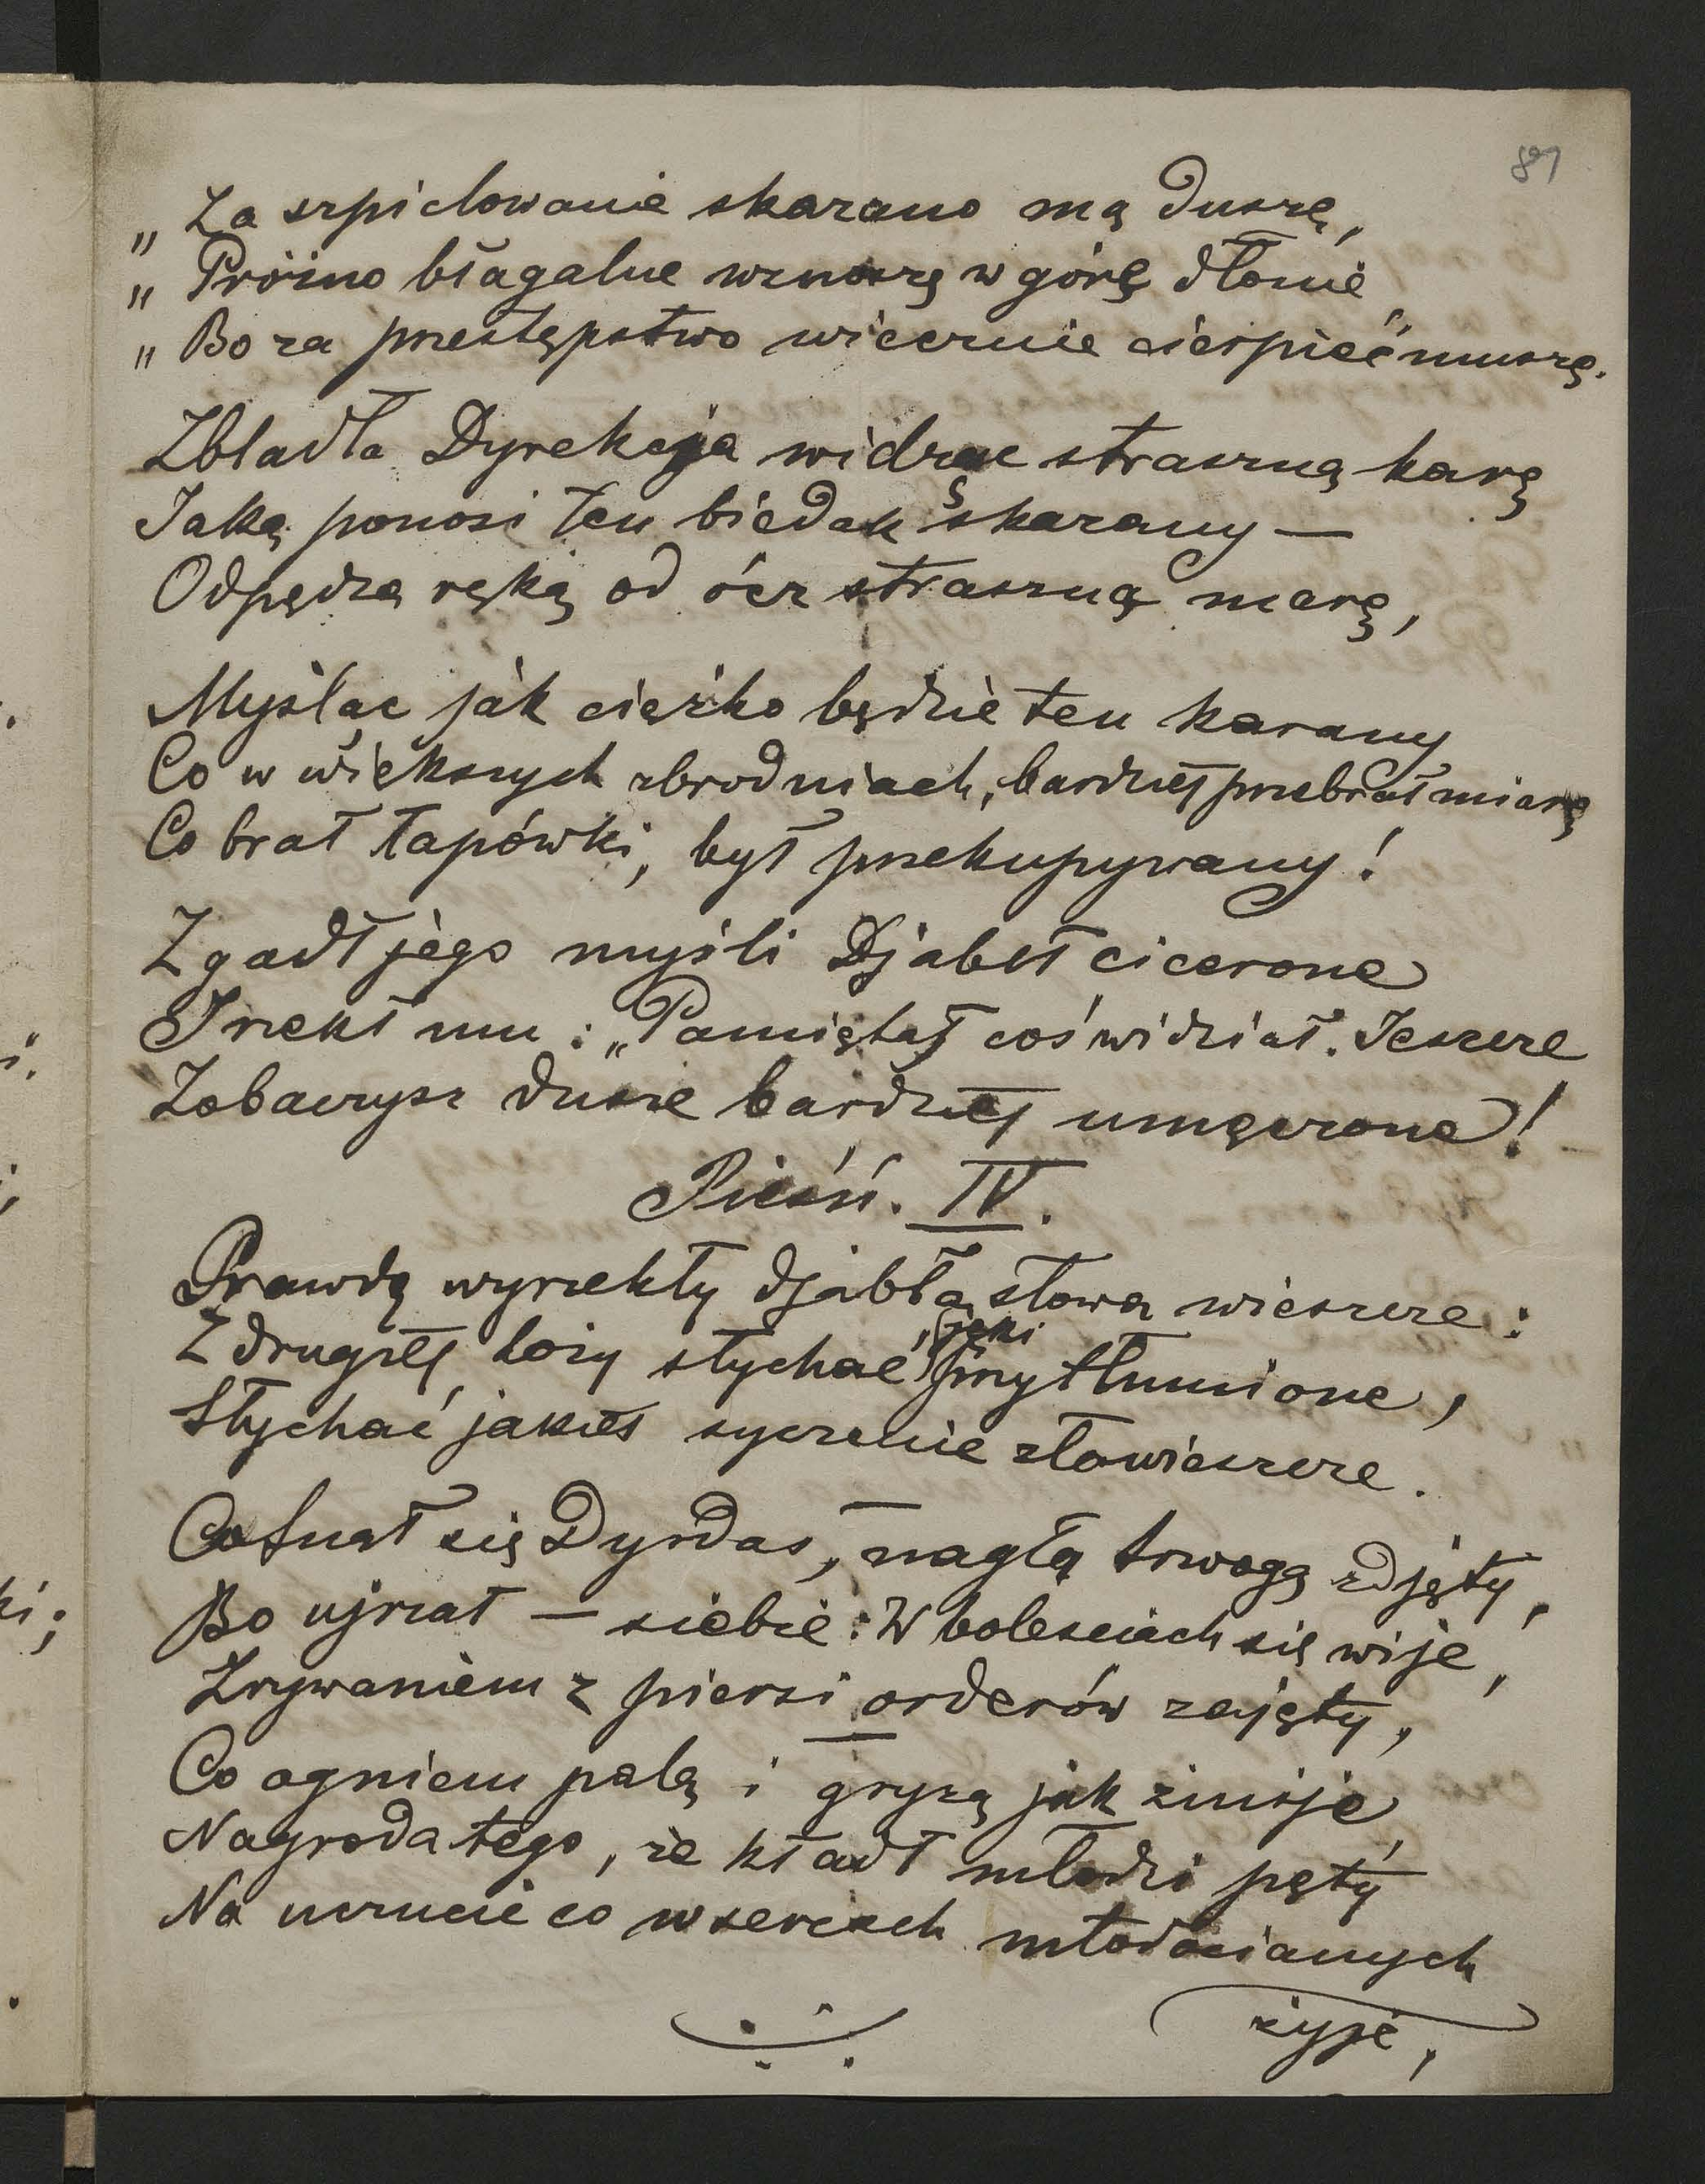 89
„ Za szpiclowanie skazano mą duszę,
„ Próżno błagalne wznoszę w górę dłonie
„ Bo za przestępstwo wiecznie cierpieć muszę."
Zbladła Dyrekcyja widząc straszną karę
Jaką ponosi ten biedak skazany —
Odpędza ręką od ócz straszną marę,
Myśląc jak ciężko będzie ten karany
Co w większych zbrodniach, bardziej przebrał miarę
Co brał łapówki, był przekupywany!
Zgadł jego myśli Djabeł cicerone
I rzekł mu: „Pamiętaj coś widział. Jeszcze
Zobaczysz dusze bardziej umęczone!
Pieśń. IV.
Prawdę wyrzekły djabła słowa wieszcze:
Z drugiej loży słychać jęki przytłumione,
Słychać jakieś syczenie złowieszcze.
Cofnął się Dyrdas, nagłą trwogą zdjęty,
Bo ujrzał — siebie: W boleściach się wije,
Zrywaniem z piersi orderów zajęty,
Co ogniem palą i gryzą jak żmije,
Nagroda tego, że kładł młodzi pęty
Na uczucie co w sercach młodocianych
żyje,